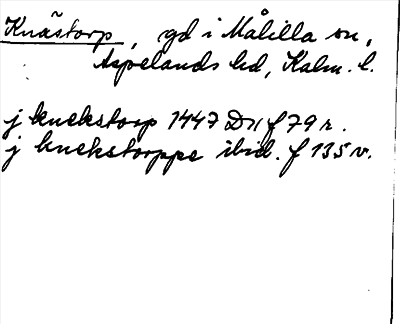 Knästorp, gd i Målilla sn,
Aspelands hd, Kalm. l.
j knekstorp 1447 Dn f 79 r.
j knekstorppe ibid. f 135 v.